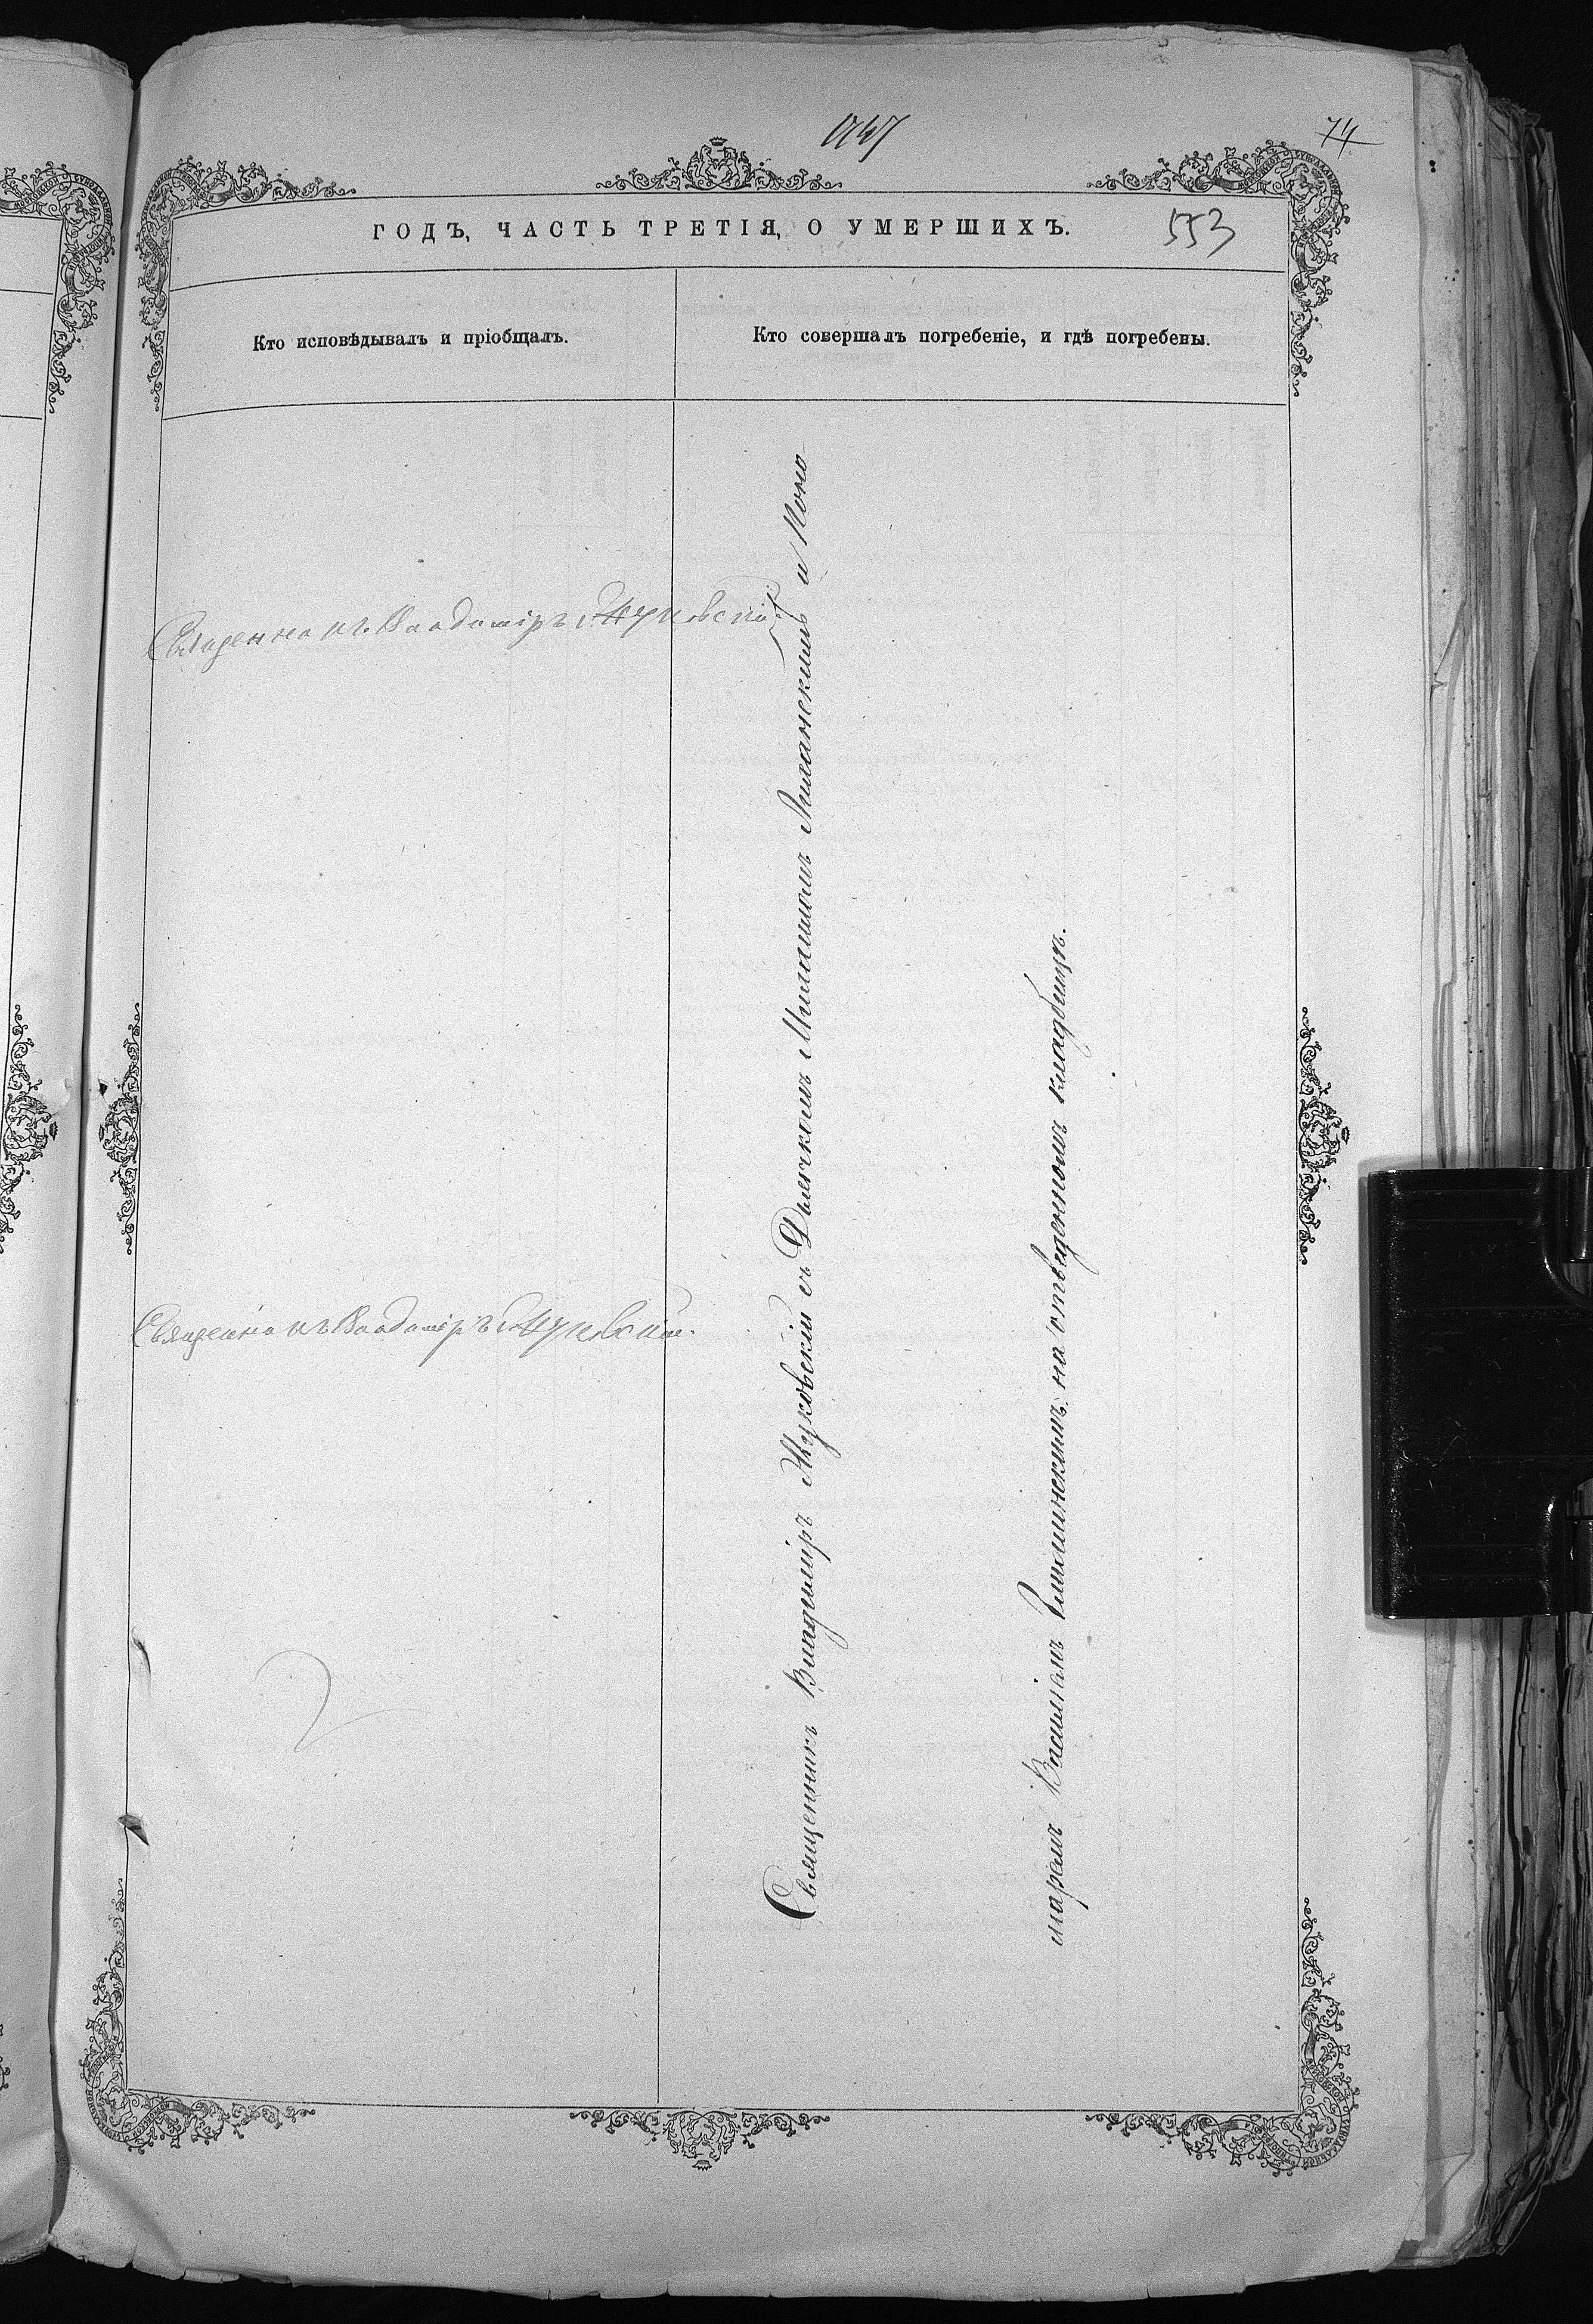 74
ГОДЪ, ЧАСТЬ ТРЕТІЯ, О УМЕРШИХЪ.
553
Кто исповѣдывалъ и пріобщалъ.
Кто совершалъ погребеніе, и гдѣ погребены.
Священникъ Владиміръ Жуковскій
Священникъ Владиміръ Жуковскій.
Священникъ Владиміръ Жуковскій съ Дьячкомъ и Поно
маремъ Василіемъ на отведенномъ кладбищѣ.